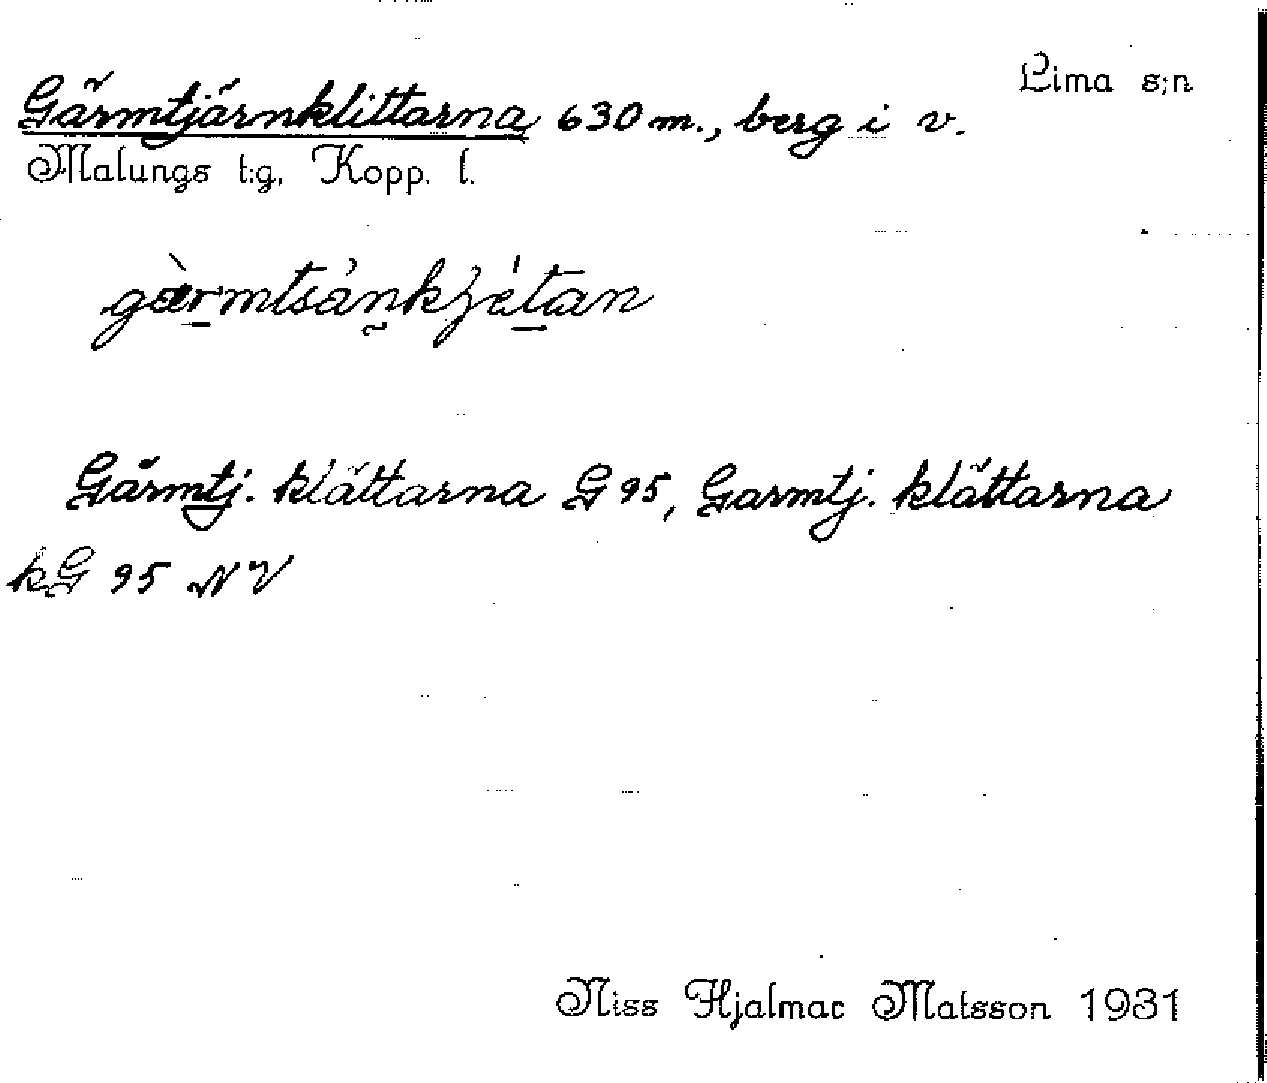 Lima s:n
Gärmtjärnklittarna 630 m., berg i v.
Malungs t:g, Kopp. l.
Gärmtj. klättarna G 95, Garmtj. klättarna
kG 95 NV
Niss Hjalmar Matsson 1931